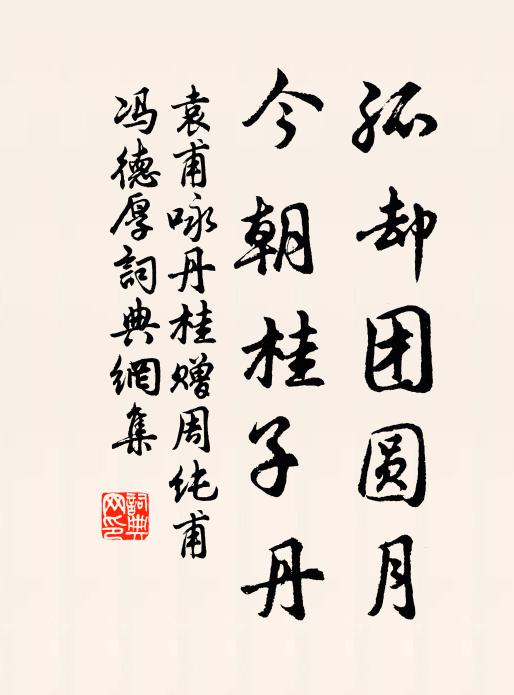 孤却团圆月
今朝桂子丹
袁甫咏丹桂赠周纯甫
冯德厚詞典網集
詞典
网印